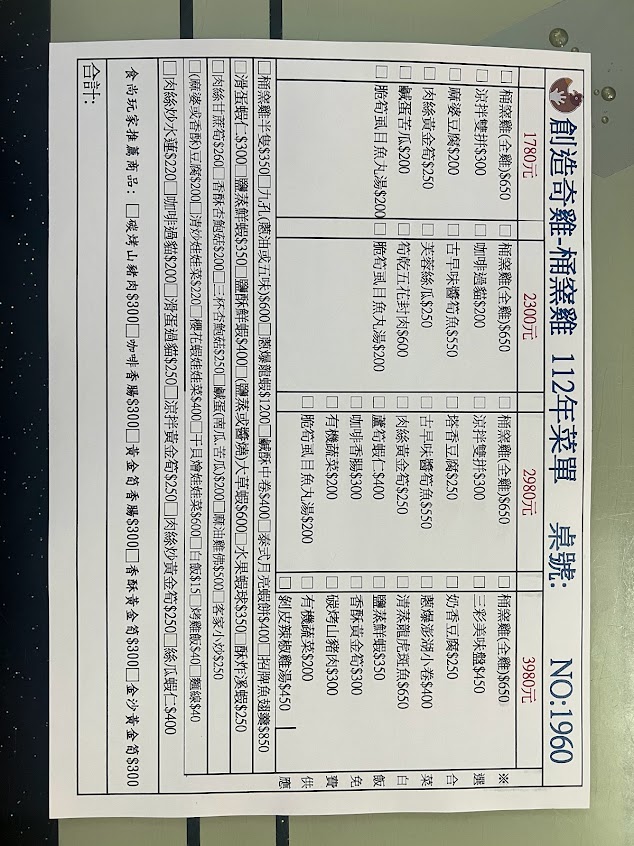 創造奇雞-桶窯雞 112年菜單 桌號: NO:1960
1780元 2300元 2980元 3980元
□桶窯雞(全雞)$650 □桶窯雞(全雞)$650 □桶窯雞(全雞)$650 □桶窯雞(全雞)$650 ※
□涼拌雙拼$300 □咖啡過貓$200 □涼拌雙拼$300 □三彩美味盤$450 選
□麻婆豆腐$200 □古早味醬筍魚$550 □塔香豆腐$250 □奶香豆腐$250 合
□肉絲黃金筍$250 □芙蓉絲瓜$250 □古早味醬筍魚$550 □蔥爆澎湖小卷$400 菜
□鹹蛋苦瓜$200 □筍乾五花封肉$600 □肉絲黃金筍$250 □清蒸龍虎斑魚$650 白
□脆筍虱目魚丸湯$200 □脆筍虱目魚丸湯$200 □蘆筍蝦仁$400 □鹽蒸鮮蝦$350 飯
□咖啡香腸$300 □香酥黃金筍$300 免
□有機蔬菜$200 □碳烤山豬肉$300 費
□脆筍虱目魚丸湯$200 □有機蔬菜$200 供
□剝皮辣椒雞湯$450 應
□桶窯雞半隻$350□九孔(蔥油或五味)$600□蔥爆龍蝦$1200□鹹酥中卷$400□泰式月亮蝦餅$400□招牌魚翅羹$850
□滑蛋蝦仁$300□鹽蒸鮮蝦$350□鹽酥鮮蝦$400□(鹽蒸或醬燒)大草蝦$600□水果蝦球$350□酥炸溪蝦$250
□肉絲甘蔗筍$260□香酥杏鮑菇$200□三杯杏鮑菇$250□鹹蛋(南瓜/苦瓜)$200□麻油雞佛$500□客家小炒$250
□(麻婆或香酥)豆腐$200□清炒娃娃菜$220□櫻花蝦娃娃菜$400□干貝燴娃娃菜$600□白飯$15□烤雞飯$40□麵線$40
□肉絲炒水蓮$220□咖啡過貓$200□滑蛋過貓$250□涼拌黃金筍$250□肉絲炒黃金筍$250□絲瓜蝦仁$400
食尚玩家推薦商品：□碳烤山豬肉$300□咖啡香腸$300□黃金筍香腸$300□香酥黃金筍$300□金沙黃金筍$300
合計: